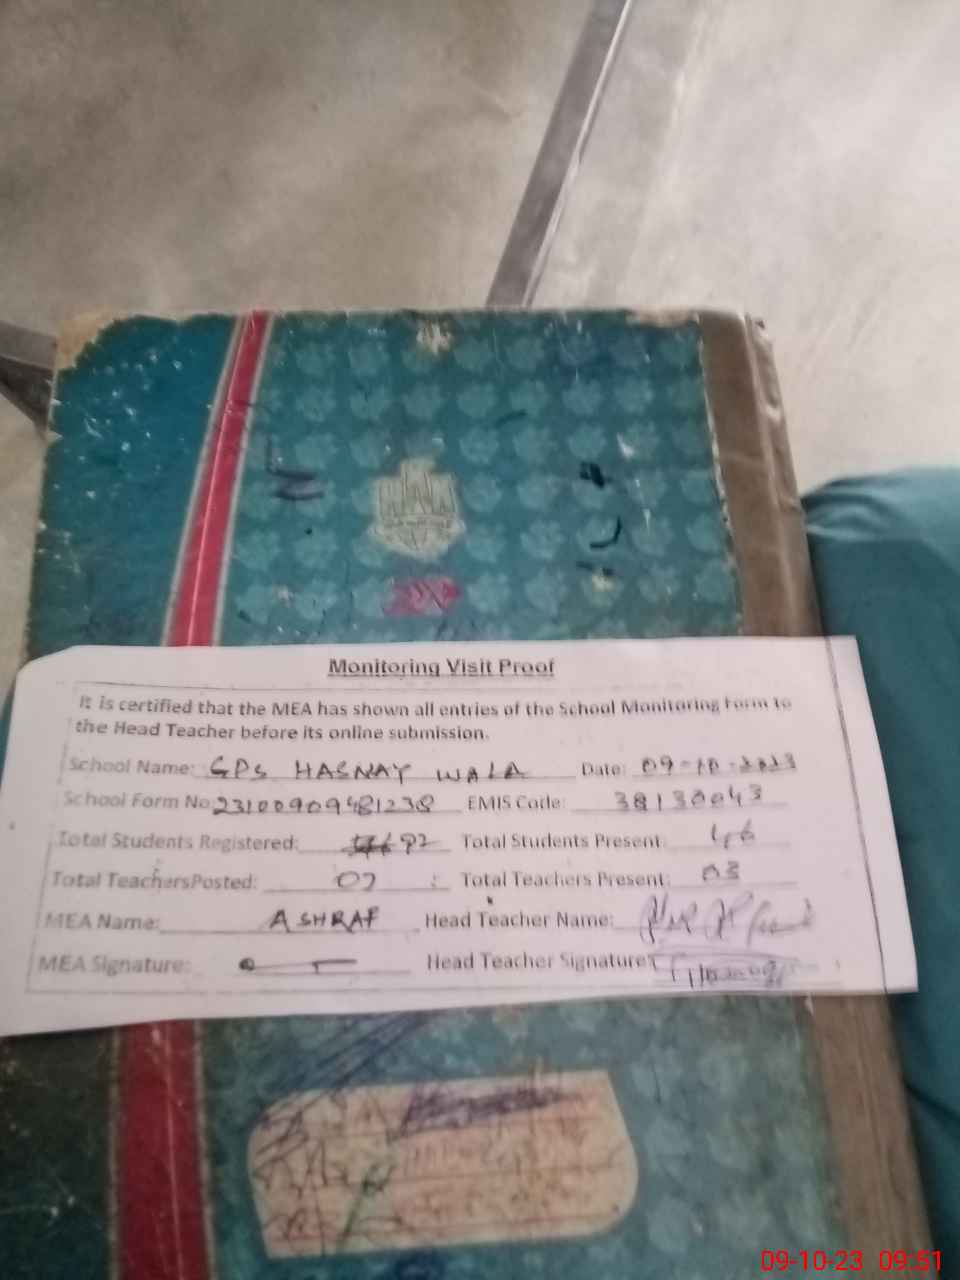 Monitoring Visit Proof
It is certified that the MEA has shown all entries of the School Monitoring Form to
the Head Teacher before its online submission.
School Name: GPS HASNAY WALA Date: 09-10-2023
School Form No: 23100909481238 EMIS Code: 38130043
Total Students Registered: 92 Total Students Present: 46
Total TeachersPosted: 07 Total Teachers Present: 03
MEA Name: ASHRAF Head Teacher Name:
MEA Signature: Head Teacher Signature:
09-10-23 09:51